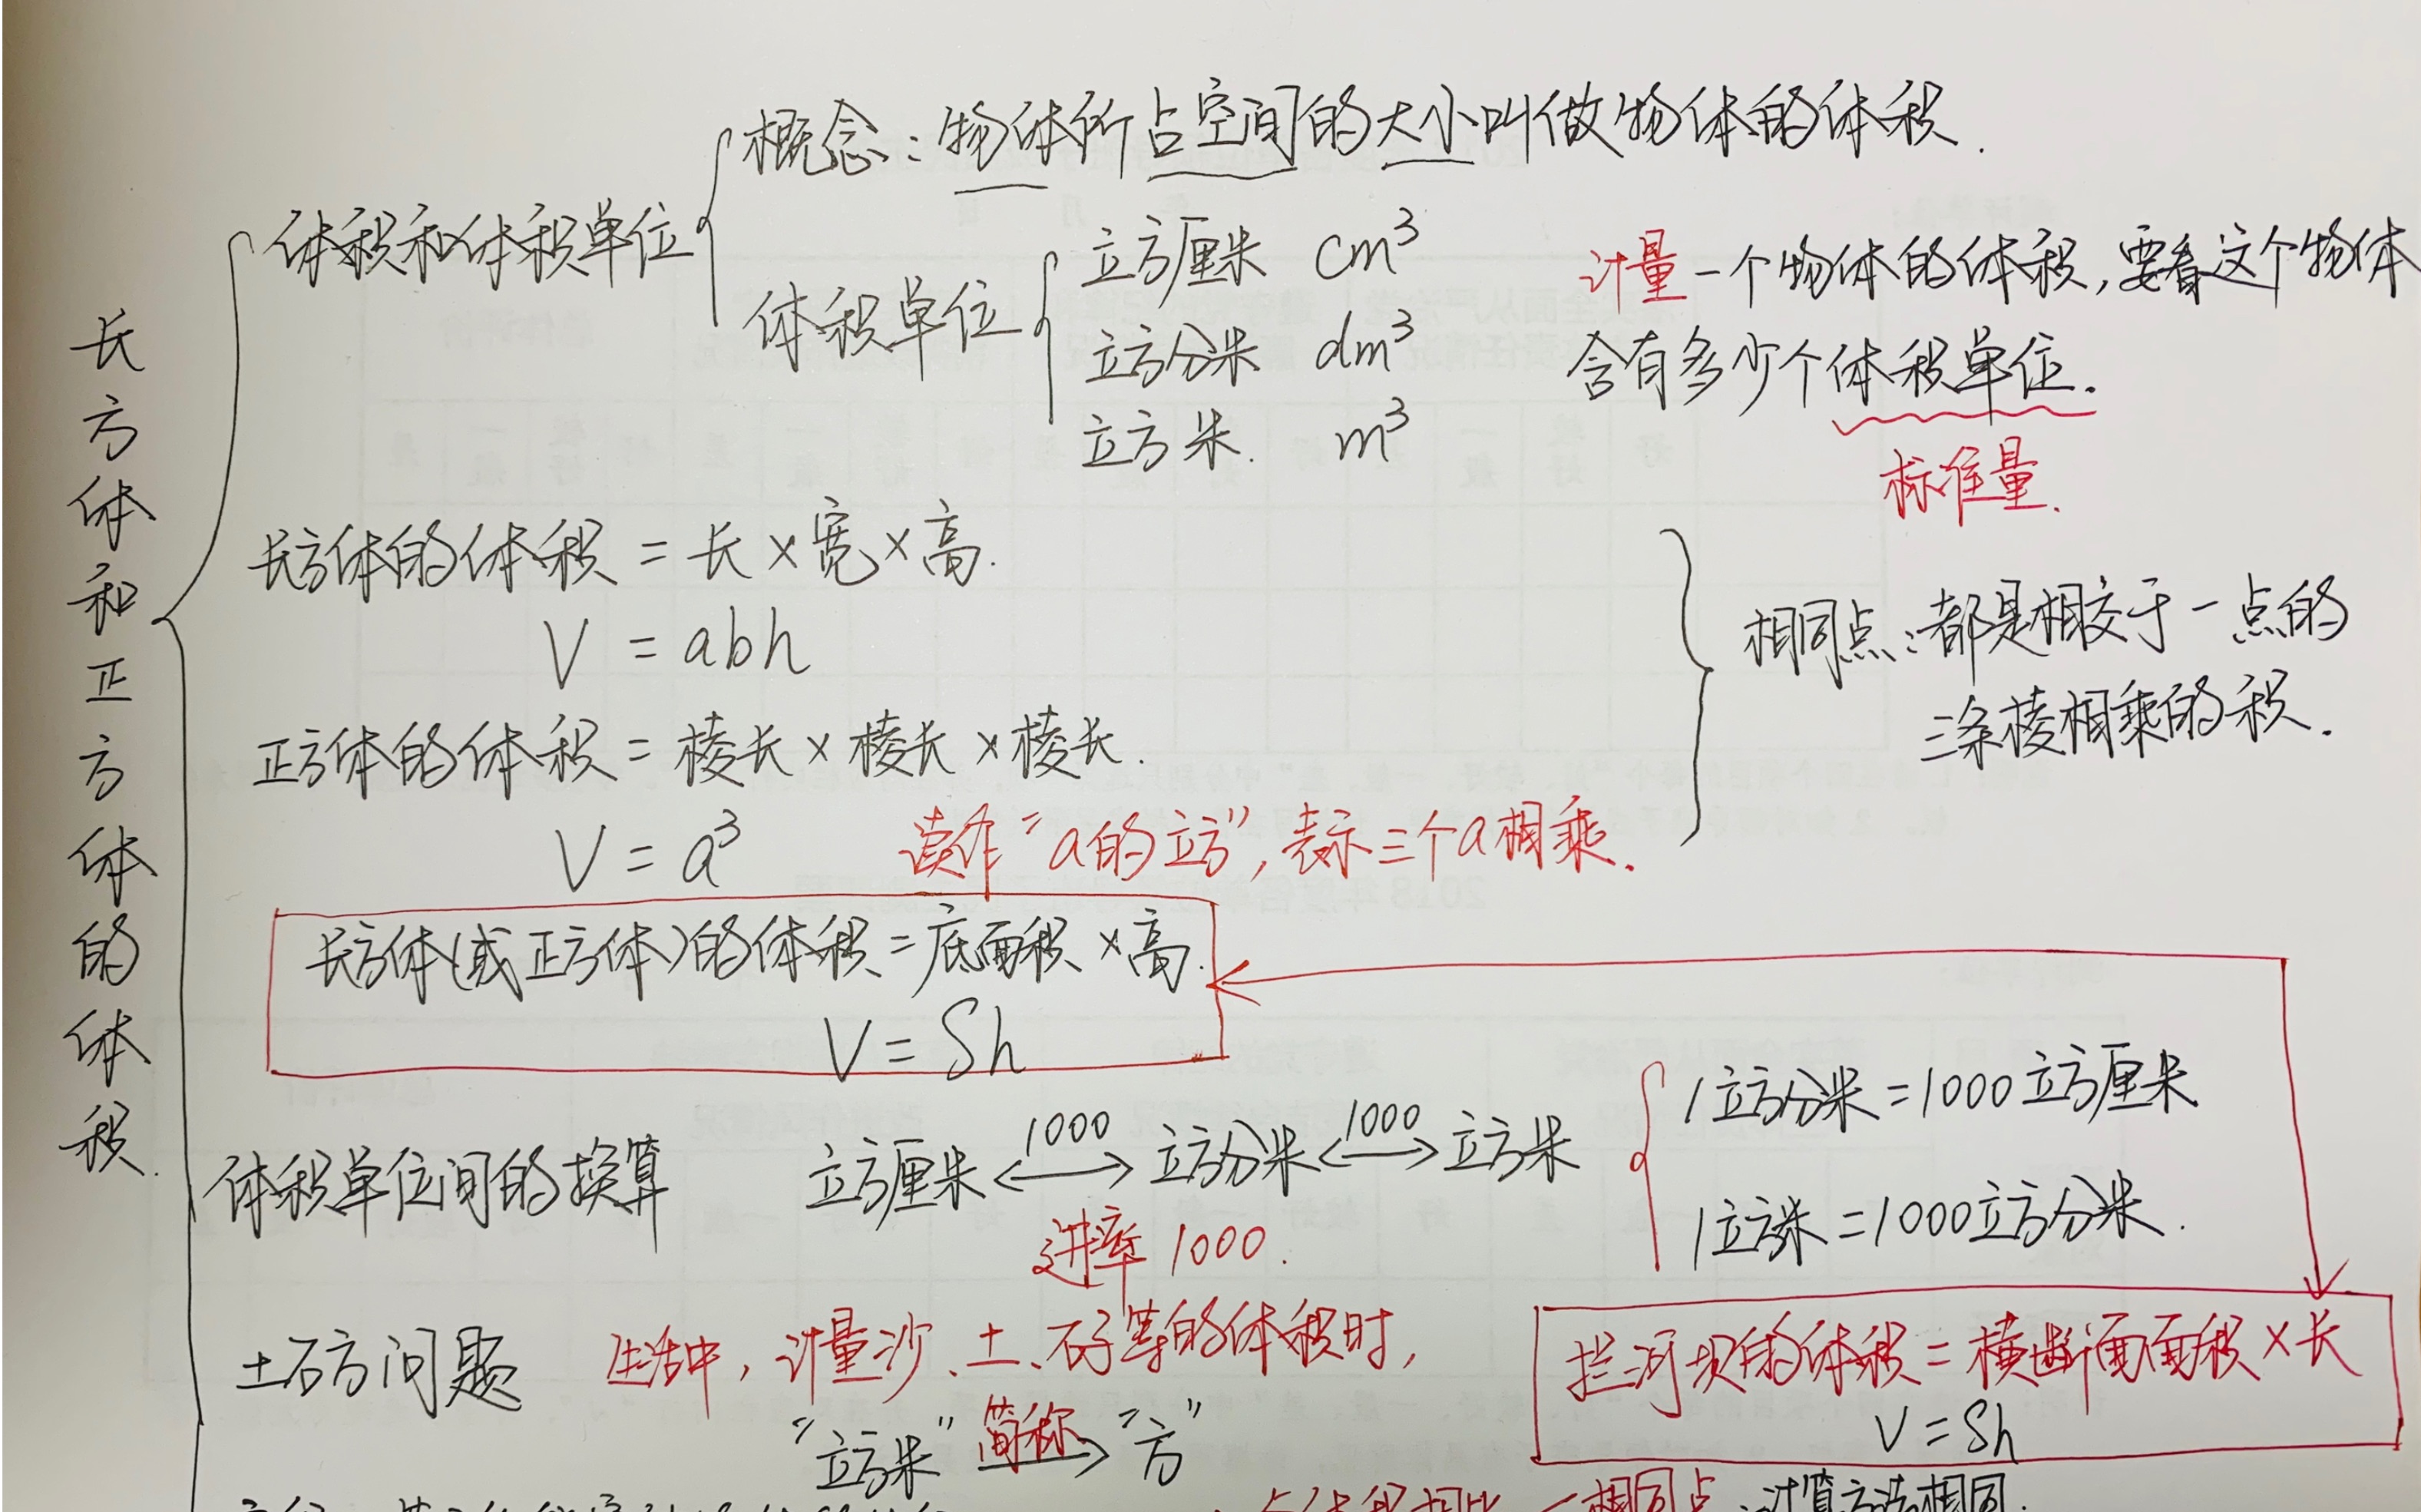 长方体和正方体的体积.
体积和体积单位
概念：物体所占空间的大小叫做物体的体积.
体积单位
立方厘米 cm³
立方分米 dm³
立方米. m³
计量一个物体的体积,要看这个物体
含有多少个体积单位.
标准量.
长方体的体积 = 长×宽×高.
V = abh
正方体的体积 = 棱长×棱长×棱长.
V = a³
读作“a的立方”,表示三个a相乘.
相同点：都是相交于一点的
三条棱相乘的积.
长方体(或正方体)的体积=底面积×高.
V = Sh
体积单位间的换算
立方厘米 ←1000→ 立方分米 ←1000→ 立方米
进率1000.
1立方分米=1000立方厘米
1立方米=1000立方分米.
土石方问题
生活中,计量沙、土、石子等的体积时,
“立方米” 简称→ “方”
拦河坝的体积=横断面面积×长
V=Sh
相同点：计算方法相同.